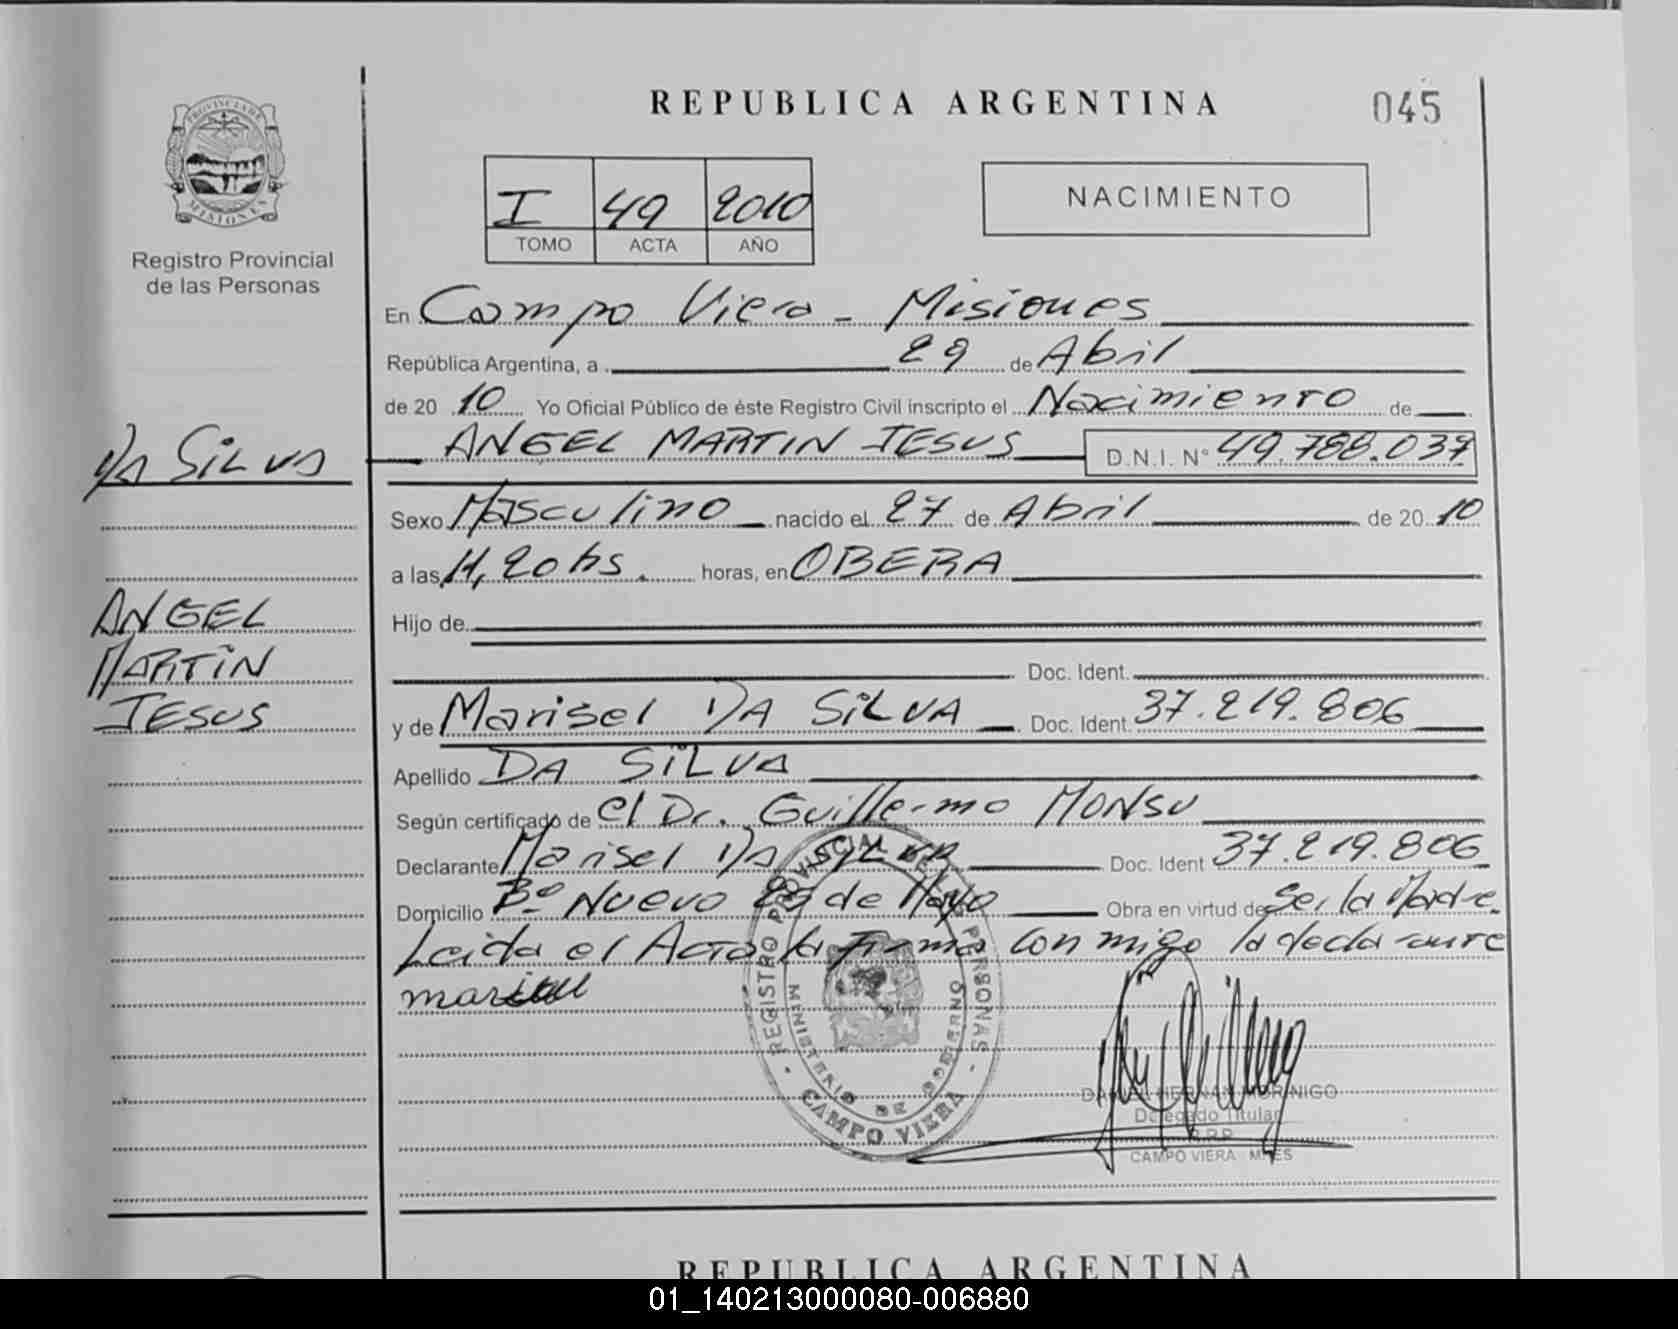 REPUBLICA ARGENTINA
045
I 49 2010
TOMO ACTA AÑO
NACIMIENTO
PROVINCIA DE
MISIONES
Registro Provincial
de las Personas
En Campo Viera - Misiones
República Argentina, a 29 de Abril
de 20 10 Yo Oficial Público de éste Registro Civil inscripto el Nacimiento de
ANGEL MARTIN JESUS D.N.I. N° 49.788.037
DA SiLVA
ANGEL
MARTiN
JESUS
Sexo Masculino nacido el 27 de Abril de 20 10
a las 11,20 hs. horas, en OBERA
Hijo de
Doc. Ident.
y de Marisel DA SiLVA Doc. Ident. 37.219.806
Apellido DA SiLVA
Según certificado de el Dr. Guillermo MONSU
Declarante Marisel DA SILVA Doc. Ident 37.219.806
Domicilio Bº Nuevo 25 de Mayo Obra en virtud de Ser la Madre.
Leida el Acta la Firma Con migo la declarante
REGISTRO PROVINCIAL DE LAS PERSONAS
MINISTERIO DE GOBIERNO
- CAMPO VIERA -
HERNAN MORINIGO
Delegado Titular
R.P.P.
CAMPO VIERA MNES
REPUBLICA ARGENTINA
01_140213000080-006880